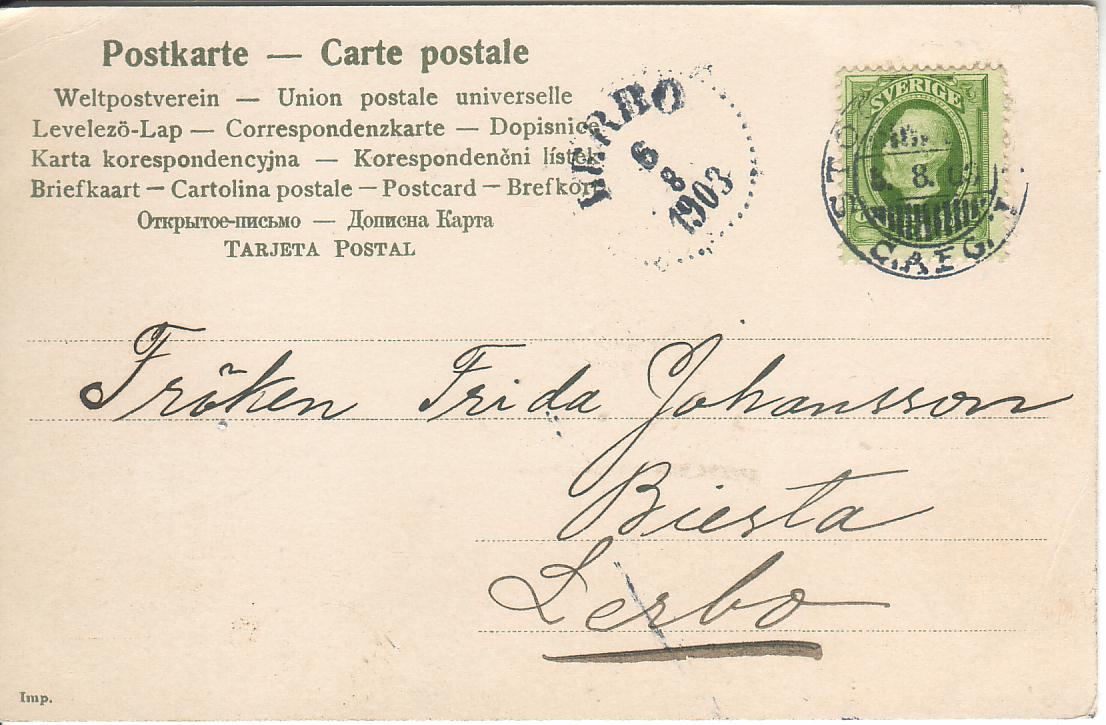 Postkarte — Carte postale
Weltpostverein — Union postale universelle
Levelezö-Lap — Correspondenzkarte — Dopisnice
Karta korespondencyjna — Korespondenčni lístek
Briefkaart — Cartolina postale — Postcard — Brefkort
Открытое-письмо — Дописна Карта
TARJETA POSTAL
LERBO
6
8
1903
SVERIGE
8.
Fröken Frida Johansson
Biesta
Lerbo
Imp.